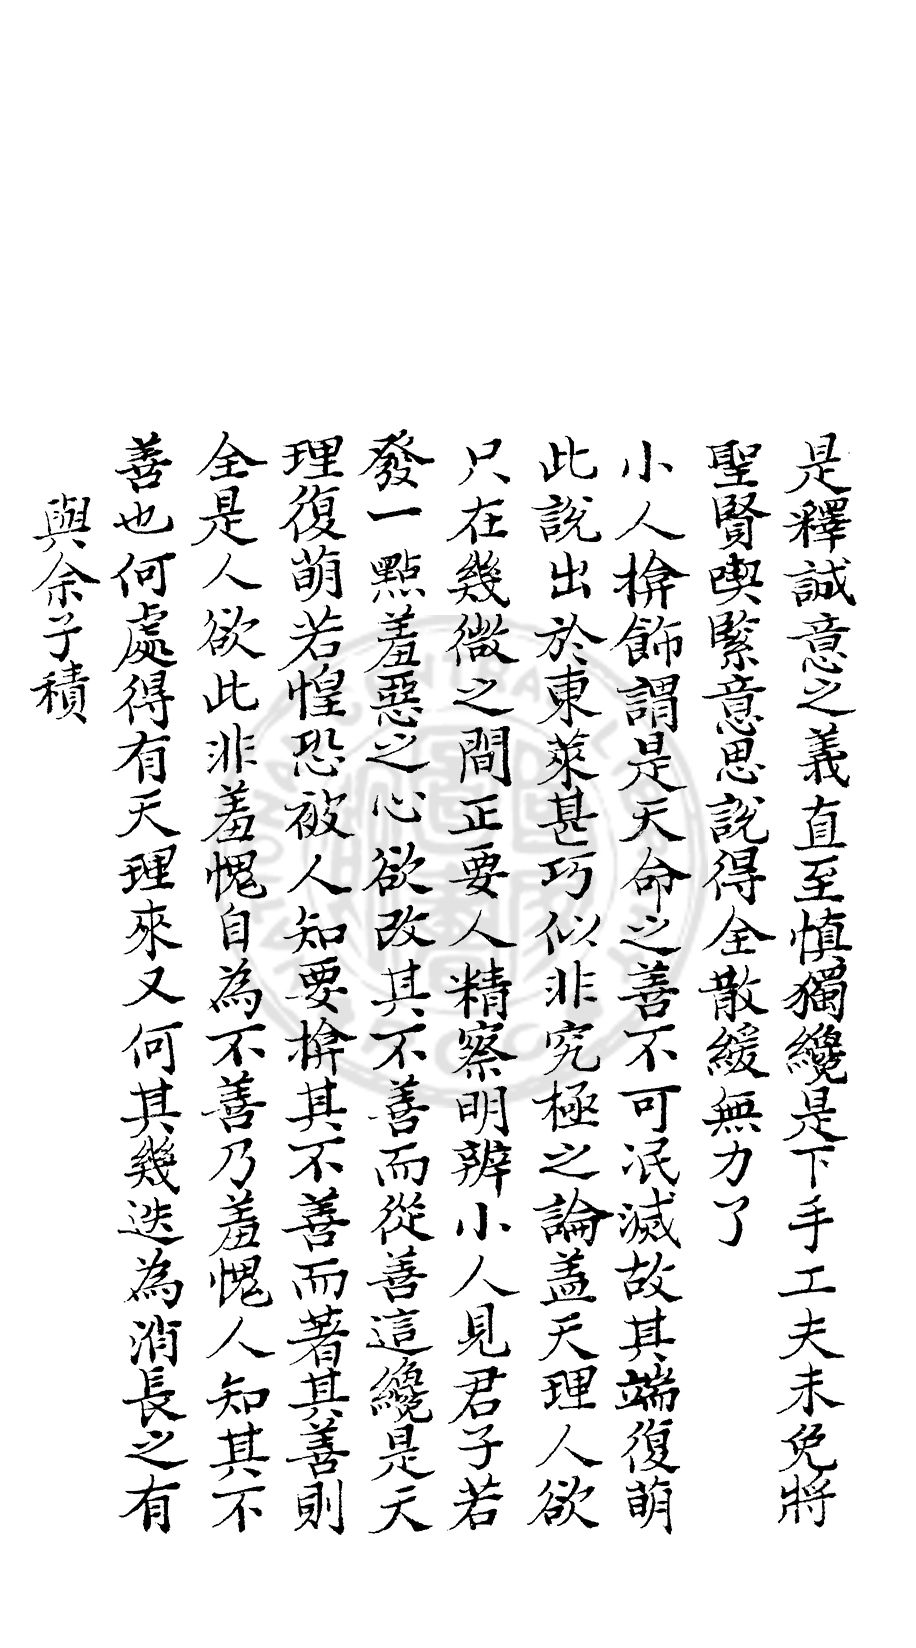 是釋誠意之義直至慎獨纔是下手工夫未免將
聖賢喫緊意思說得全散緩無力了
小人揜飾謂是天命之善不可泯滅故其端復萌
此說出於東萊甚巧似非究極之論盖天理人欲
只在幾微之間正要人精察明辨小人見君子若
發一點羞惡之心欲改其不善而從善這纔是天
理復萌若惶恐被人知要揜其不善而著其善則
全是人欲此非羞愧自為不善乃羞愧人知其不
善也何處得有天理來又何其幾迭為消長之有
與余子積